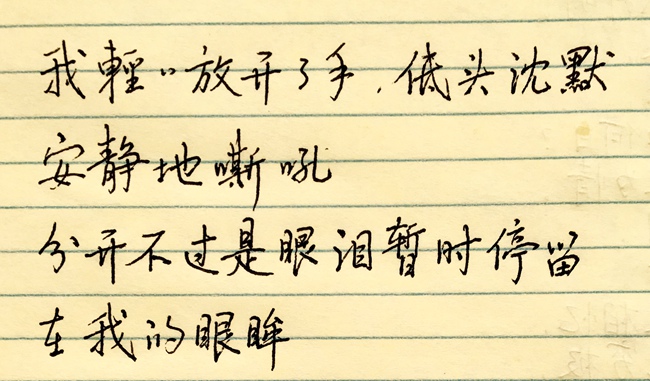 我輕〃放开了手,低头沈默
安静地嘶吼
分开不过是眼泪暂时停留
在我的眼眸